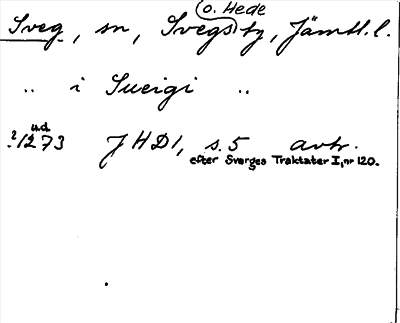 o. Hede
Sveg, sn, Svegs tg, Jämtl. l.
.. i Sueigi ..
u.d.
?1273 JHD1, s. 5 avtr.
efter Sverges Traktater I, nr 120.